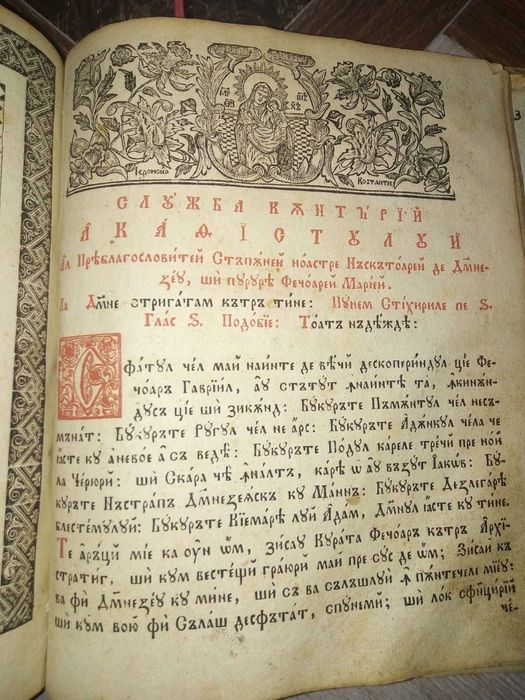 ІЕРОМОНА КОСТАНТІЕ
СЛꙊЖБА КѪНТЪРІЙ
АКАѲІСТꙊЛꙊЙ
Прѣблагословитей Стъпѫней ноастре Нъскътоарей де Дмне-
ꙁеꙋ, ши пꙋрꙋрѣ Фечоарей Маріей.
Ла Дмне стригатам кътръ тине: Пꙋнем Стіхириле пе Ѕ.
Глас Ѕ. Подобіе: Тоатъ нъдеждѣ:
Сфатꙋл чел май наинте де вечй дескопериндꙋл ціе Фе-
чоаръ Гавріил, аꙋ стътꙋт ꙟнаинтѣ та, ꙟкинѫн-
дꙋсъ ціе ши ꙁикѫнд: Бꙋкꙋръте Пъмѫнтꙋл чел несъ-
мънат: Бꙋкꙋръте Рꙋгꙋл чел не арс: Бꙋкꙋръте Адѫнкꙋл чела че
ꙗсте кꙋ аневое а съ ведѣ: Бꙋкꙋръте Подꙋл кареле тречй пре ной
ла Черюрй: ши Скара чѣ ꙟналтъ, карѣ ѡ аꙋ въꙁꙋт Іаков: Бꙋ-
кꙋръте Нъстрапъ Дмнеꙁеѧскъ кꙋ Маннъ: Бꙋкꙋръте Деꙁлегарѣ
блестемꙋлꙋй: Бꙋкꙋръте Кіемарѣ лꙋй Адам, Дмнꙋл ꙗсте кꙋ тине.
Те аръцй міе ка ꙋн ѡм, ꙁисаꙋ Кꙋрата Фечоаръ кътръ Архі-
стратиг, ши кꙋм вестещй граюрй май пре сꙋс де ѡм; Зисай къ
ва фи Дмнеꙁеꙋ кꙋ мине, ши съ ва сълъшлꙋй ꙟ пѫнтечеле міеꙋ:
ши кꙋм вою фи Сълаш десфътат, спꙋнемй; ши лок сфинцирій
че-